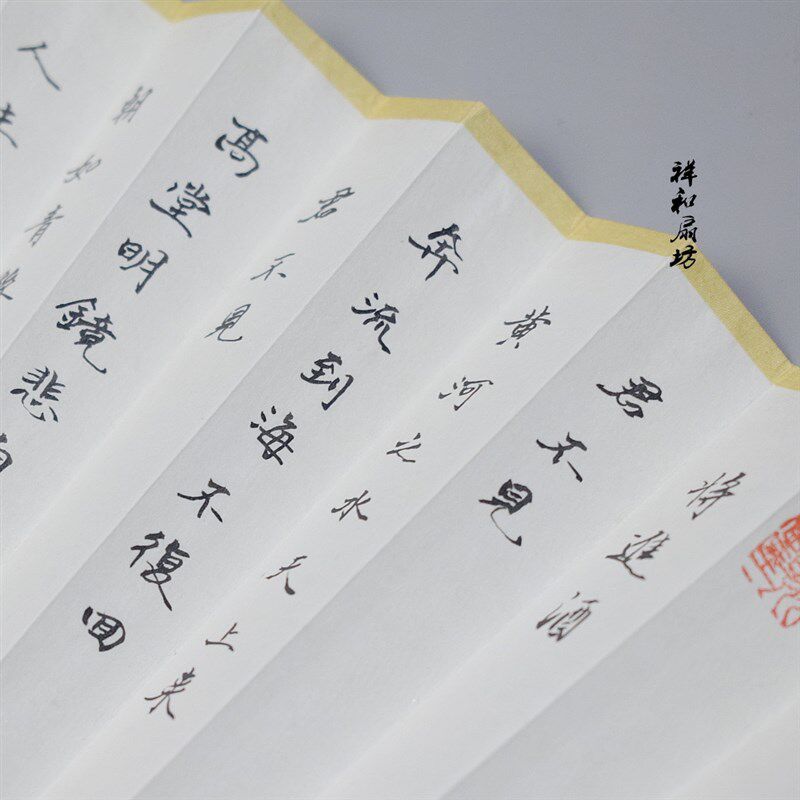 将進酒
君不見
黄河之水天上来
奔流到海不復回
君不見
高堂明鏡悲白
朝如青
人生
祥和扇坊